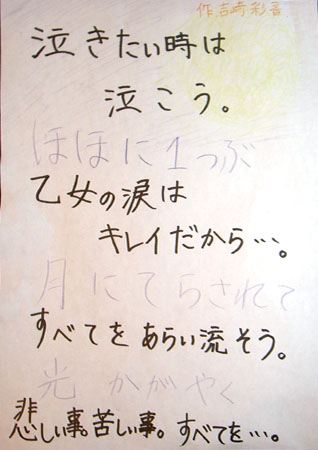 作 吉崎彩音
泣きたい時は
泣こう。
ほほに1つぶ
乙女の涙は
キレイだから…。
月にてらされて
すべてをあらい流そう。
光かがやく
悲しい事。苦しい事。すべてを…。